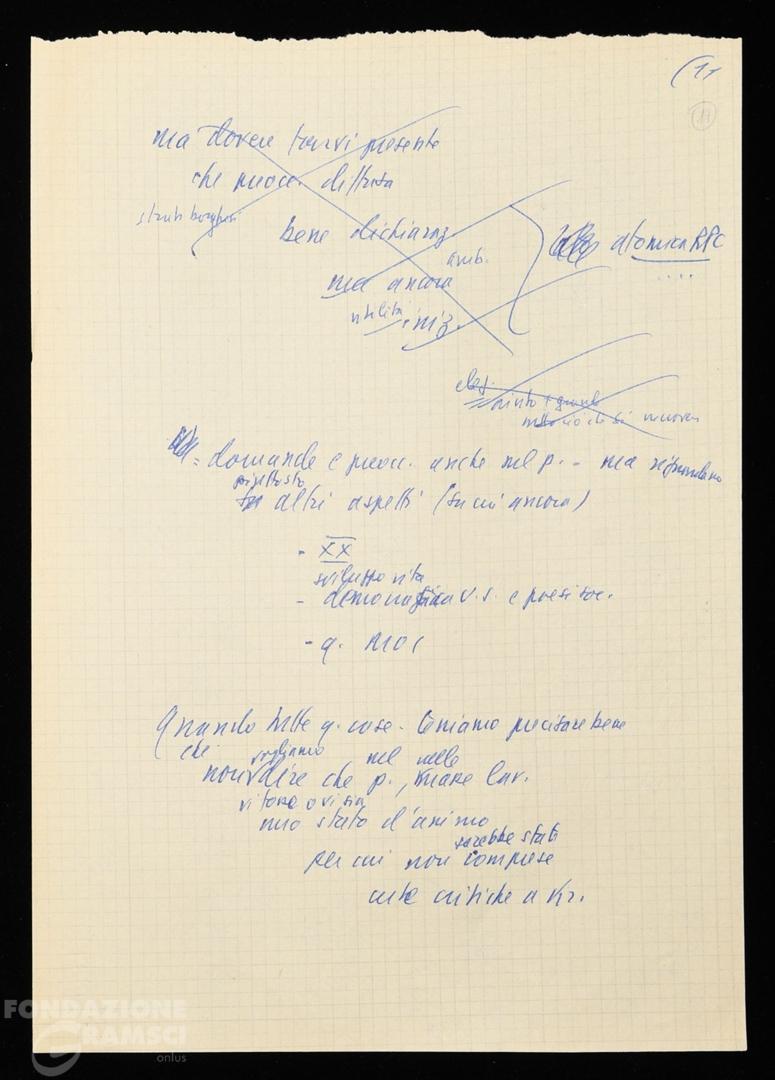 (11
11
ma dovere tenervi presente
che preocc. diffusa
strati borghesi
bene dichiaraz.
amb.
ma ancora
utilità iniz.
atomica RPC
....
= domande e preocc. anche nel p. - ma riguardano
piuttosto
altri aspetti (su cui ancora)
- XX
sviluppo vita
- democratica U.S. e paesi soc.
- q. MOC
Quando tutte q. cose. Teniamo precisare bene
che vogliamo nel nelle
non dire che p., masse lav.
vi fosse o vi sia
uno stato d'animo
sarebbe stato
per cui non comprese
certe critiche a Kr.
FONDAZIONE
GRAMSCI
onlus